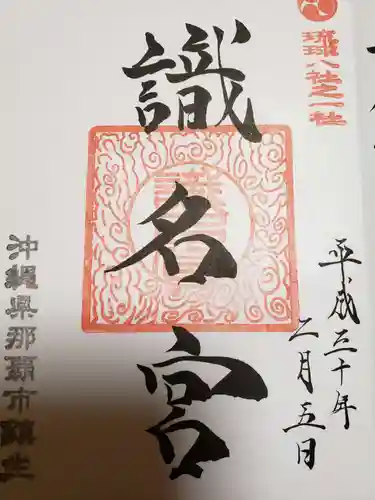 琉球八社之一社
平成三十年
二月五日
識名宮
沖縄県那覇市鎮座